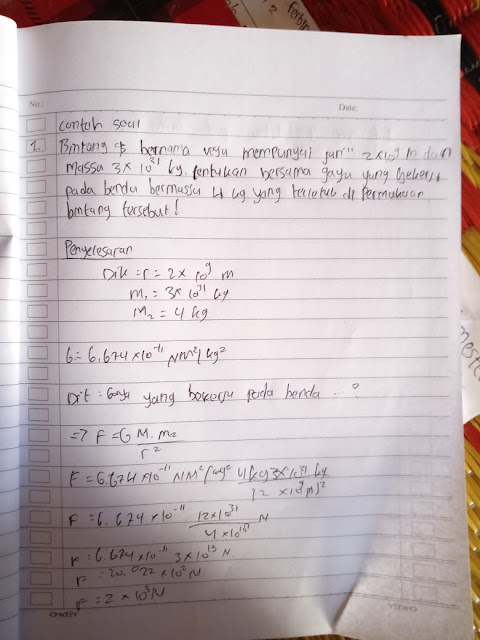 No.:
Date:
contoh soal
1. Bintang yg bernama vega mempunyai jari" 2 x 10⁹ m dan
massa 3 x 10³¹ kg. tentukan bersama gaya yang bekerja
pada benda bermassa 4 kg yang terletak di permukaan
bintang tersebut!
Penyelesaian
Dik = r = 2 x 10⁹ m
m₁ = 3 x 10³¹ kg
M₂ = 4 kg
G = 6.674 x 10⁻¹¹ NM²/kg²
Dit : Gaya yang bekerja pada benda ...?
=> F = G M₁ m₂ / r²
F = 6.674 x 10⁻¹¹ NM²/kg² 4 kg 3x10³¹ kg / (2 x 10⁹ m)²
F = 6.674 x 10⁻¹¹ 12 x 10³¹ / 4 x 10¹⁸ N
F = 6.674 x 10⁻¹¹ 3 x 10¹³ N
F = 20.022 x 10² N
F = 2 x 10³ N